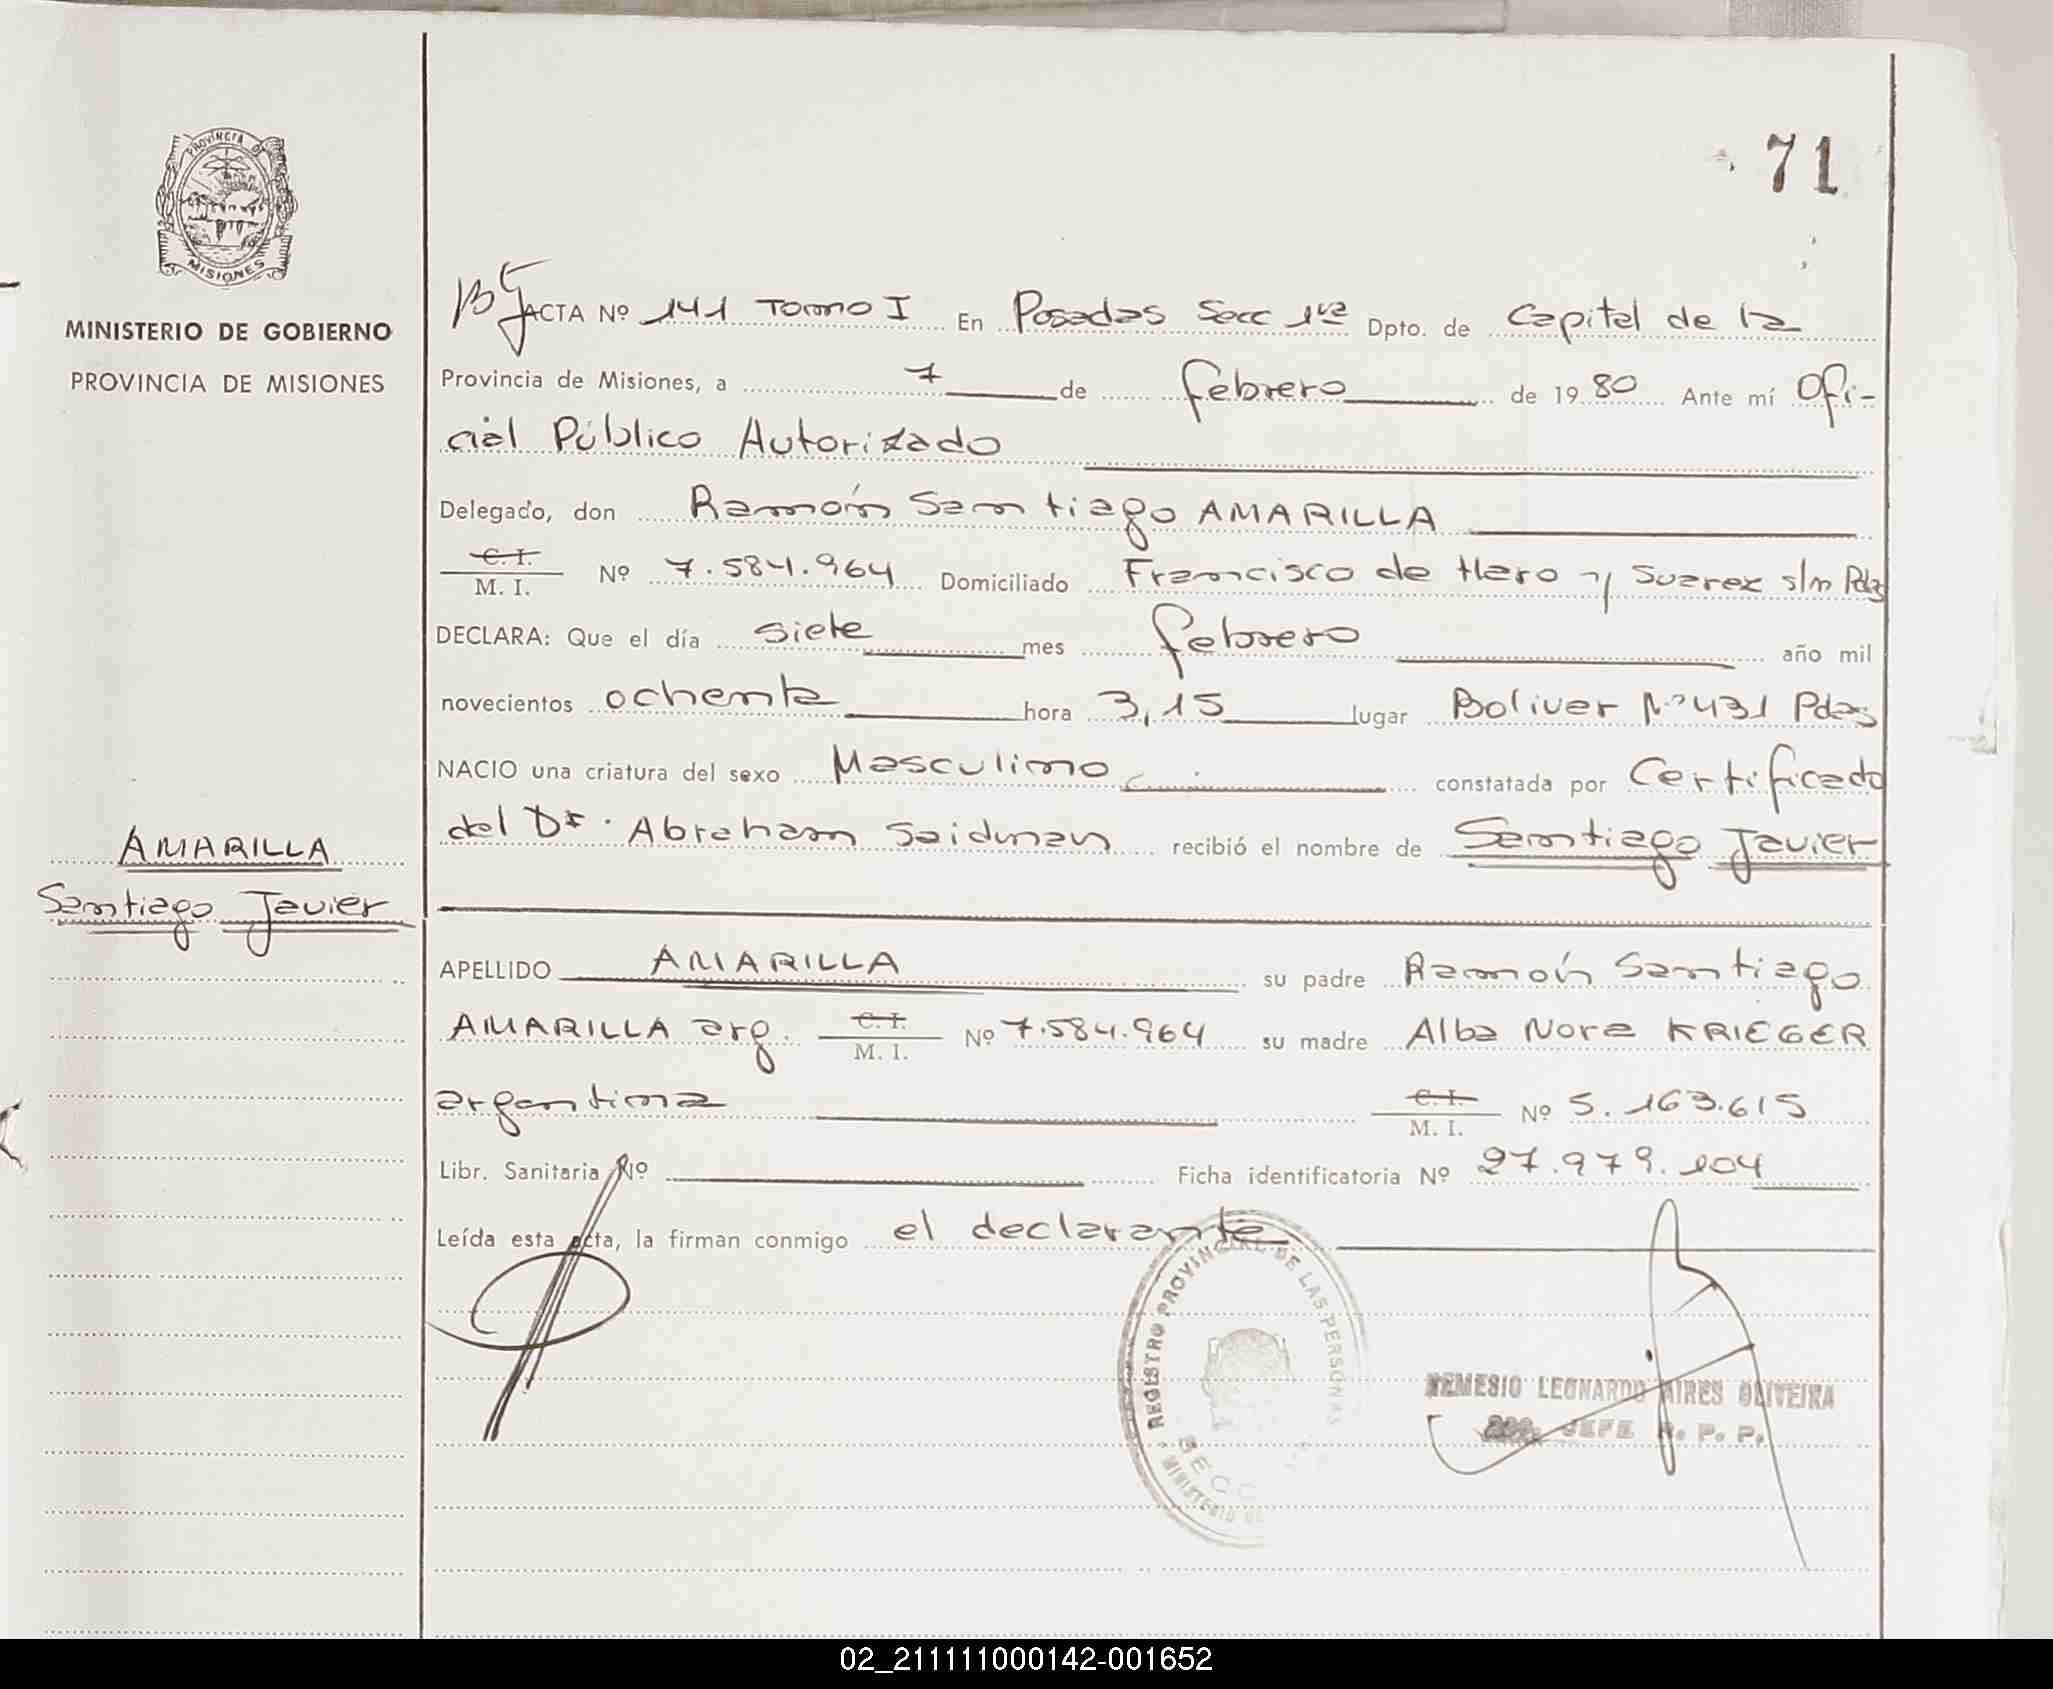 71
PROVINCIA DE
MISIONES
MINISTERIO DE GOBIERNO
PROVINCIA DE MISIONES
ACTA Nº 141 Tomo I En Posadas Secc 1ra Dpto. de Capital de la
Provincia de Misiones, a 7 de febrero de 1980 Ante mí Ofi-
cial Público Autorizado
Delegado, don Ramón Santiago AMARILLA
C. I.
M. I. Nº 7.584.964 Domiciliado Francisco de Haro y Suarez s/n Pdas
DECLARA: Que el día siete mes febrero año mil
novecientos ochenta hora 3,15 lugar Bolivar Nº 431 Pdas
NACIO una criatura del sexo Masculino constatada por Certificado
del Dr. Abraham Saidman recibió el nombre de Santiago Javier
AMARILLA
Santiago Javier
APELLIDO AMARILLA su padre Ramón Santiago
AMARILLA arg. C. I.
M. I. Nº 7.584.964 su madre Alba Nora KRIEGER
argentina C. I.
M. I. Nº 5.163.615
Libr. Sanitaria Nº Ficha identificatoria Nº 27.979.104
Leída esta acta, la firman conmigo el declarante
REGISTRO PROVINCIAL DE LAS PERSONAS
SECC
MINISTERIO DE
NEMESIO LEONARDO AIRES OLIVEIRA
JEFE R. P. P.
02_211111000142-001652